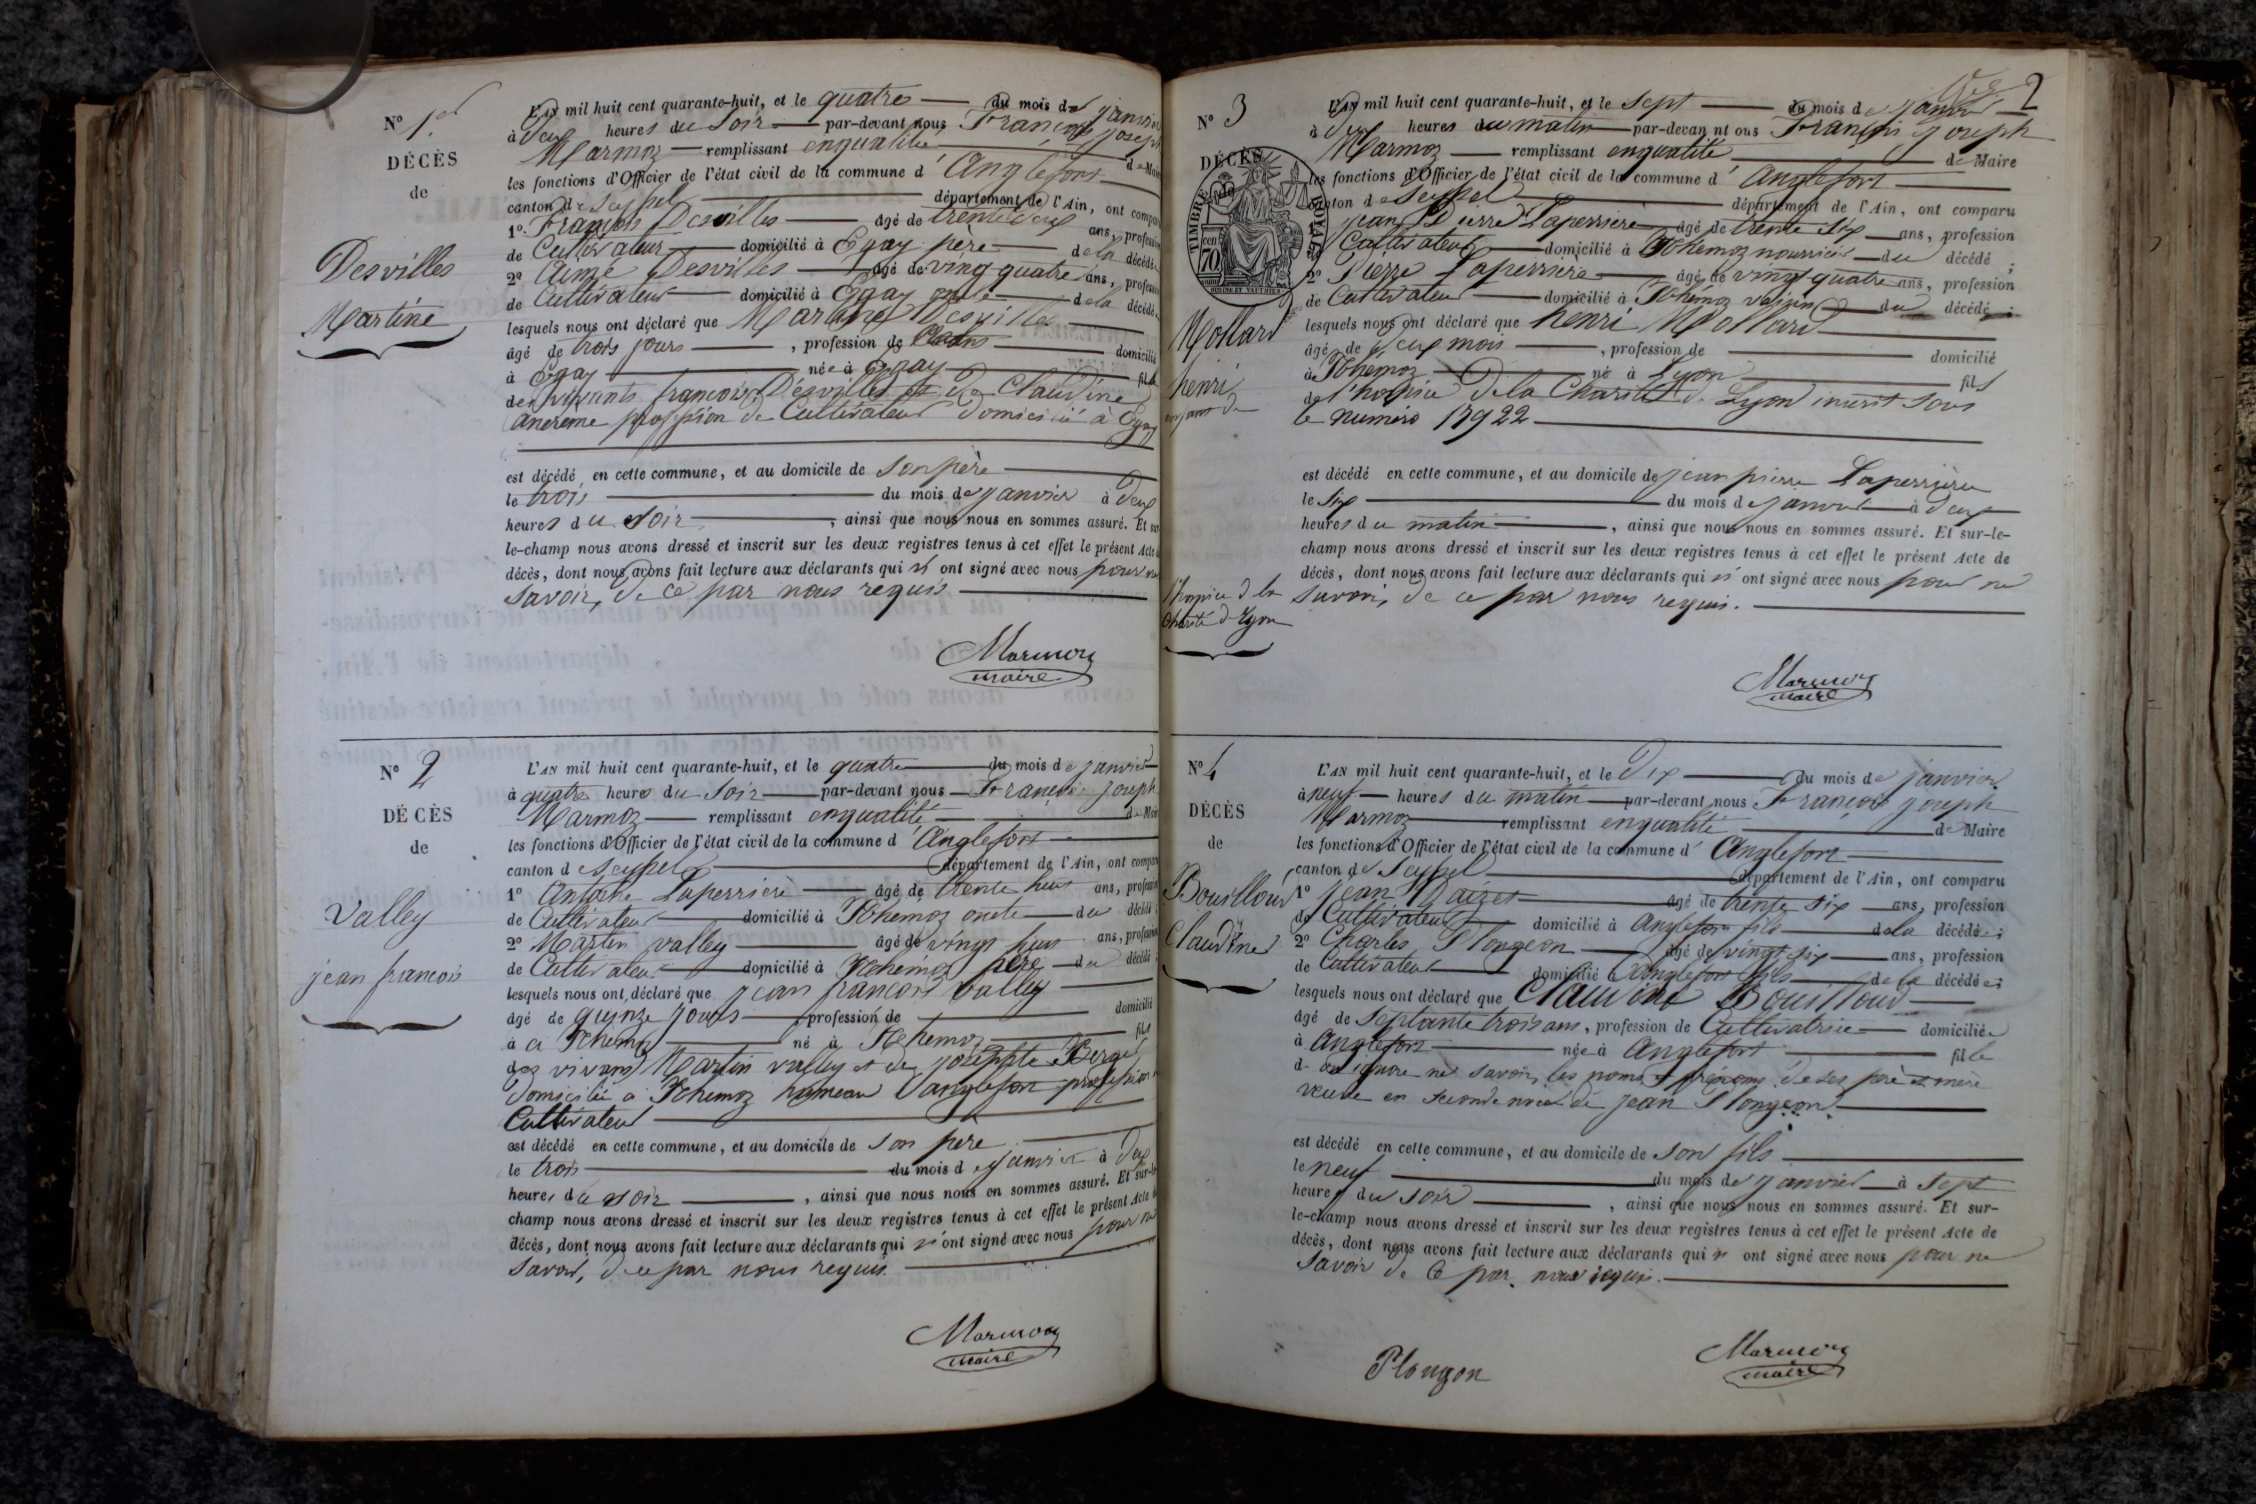 N° 1er
DÉCÈS
de
Desvilles
Martine
L'AN mil huit cent quarante-huit, et le quatre du mois de janvier
à deux heures du soir par-devant nous François joseph
Marmoz remplissant enqualité de Maire
les fonctions d'Officier de l'état civil de la commune d'Anglefort
canton de seyssel département de l'Ain, ont comparu
1° François Desvilles âgé de trente deux ans, profession
de Cultivateur domicilié à Egay père de la décédée
2° Aimé Desvilles âgé de vingt quatre ans, profession
de Cultivateur domicilié à Egay oncle de la décédée
lesquels nous ont déclaré que Martine Desvilles
âgé de trois jours, profession de domicilié
à Egay née à Egay fille
des vivants francois Desvilles et de Claudine
profession de Cultivateur domicilié à Egay
est décédé en cette commune, et au domicile de son père
le trois du mois de janvier à deux
heures du soir, ainsi que nous nous en sommes assuré. Et sur
le-champ nous avons dressé et inscrit sur les deux registres tenus à cet effet le présent Acte de
décès, dont nous avons fait lecture aux déclarants qui n'ont signé avec nous pour ne
savoir, de ce par nous requis.
Marmoz
maire
N° 2
DÉCÈS
de
Valley
jean francois
L'AN mil huit cent quarante-huit, et le quatre du mois de janvier
à quatre heures du soir par-devant nous François joseph
Marmoz remplissant enqualité de Maire
les fonctions d'Officier de l'état civil de la commune d'Anglefort
canton de seyssel département de l'Ain, ont comparu
1° Antoine Laperrière âgé de trente huit ans, profession
de Cultivateur domicilié à oncle du décédé
2° Martin valley âgé de vingt huit ans, profession
de Cultivateur domicilié à père du décédé
lesquels nous ont déclaré que jean francois valley
âgé de quinze jours, profession de domicilié
à né à fils
des vivans Martin valley et de josephte Berger
domicilié à hameau d'anglefort profession de
Cultivateur
est décédé en cette commune, et au domicile de son père
le trois du mois de janvier à deux
heures du soir, ainsi que nous nous en sommes assuré. Et sur-le-
champ nous avons dressé et inscrit sur les deux registres tenus à cet effet le présent Acte de
décès, dont nous avons fait lecture aux déclarants qui n'ont signé avec nous pour ne
savoir, de ce par nous requis.
Marmoz
maire
2
N° 3
DÉCÈS
TIMBRE ROYAL
70 cen
Mollard
henri
enfant de
l'hospice de la
Charité de Lyon
L'AN mil huit cent quarante-huit, et le sept du mois de janvier
à deux heures du matin par-devan nt ous François joseph
Marmoz remplissant enqualité de Maire
les fonctions d'Officier de l'état civil de la commune d'Anglefort
canton de seyssel département de l'Ain, ont comparu
jean Pierre Laperrière âgé de trente six ans, profession
Cultivateur domicilié à nourricier du décédé ;
2° Pierre Laperrière âgé de vingt quatre ans, profession
de Cultivateur domicilié à voisin du décédé ;
lesquels nous ont déclaré que henri Mollard
âgé de deux mois, profession de domicilié
à né à Lyon fils
de l'hospice de la Charité de Lyon inscrit sous
le numéro 17922
est décédé en cette commune, et au domicile de jean pierre Laperrière
le six du mois de janvier à deux
heures du matin, ainsi que nous nous en sommes assuré. Et sur-le-
champ nous avons dressé et inscrit sur les deux registres tenus à cet effet le présent Acte de
décès, dont nous avons fait lecture aux déclarants qui n'ont signé avec nous pour ne
savoir, de ce par nous requis.
Marmoz
maire
N° 4
DÉCÈS
de
Bouilloud
Claudine
L'AN mil huit cent quarante-huit, et le Dix du mois de janvier
à neuf heures du matin par-devant nous François joseph
Marmoz remplissant enqualité de Maire
les fonctions d'Officier de l'état civil de la commune d'Anglefort
canton de Seyssel département de l'Ain, ont comparu
1° jean âgé de trente six ans, profession
de Cultivateur domicilié à Anglefort fils de la décédée ;
2° Charles Plongeon âgé de vingt six ans, profession
de Cultivateur domicilié à Anglefort fils de la décédée ;
lesquels nous ont déclaré que Claudine Bouilloud
âgé de septante trois ans, profession de Cultivatrice domiciliée
à Anglefort née à Anglefort fille
de ignore ne savoir les noms et prénoms de ses père et mère
veuve en seconde noce de jean Plongeon.
est décédé en cette commune, et au domicile de son fils
le neuf du mois de janvier à sept
heures du soir, ainsi que nous nous en sommes assuré. Et sur-
le-champ nous avons dressé et inscrit sur les deux registres tenus à cet effet le présent Acte de
décès, dont nous avons fait lecture aux déclarants qui n ont signé avec nous pour ne
savoir de ce par nous requis.
Plongon
Marmoz
maire